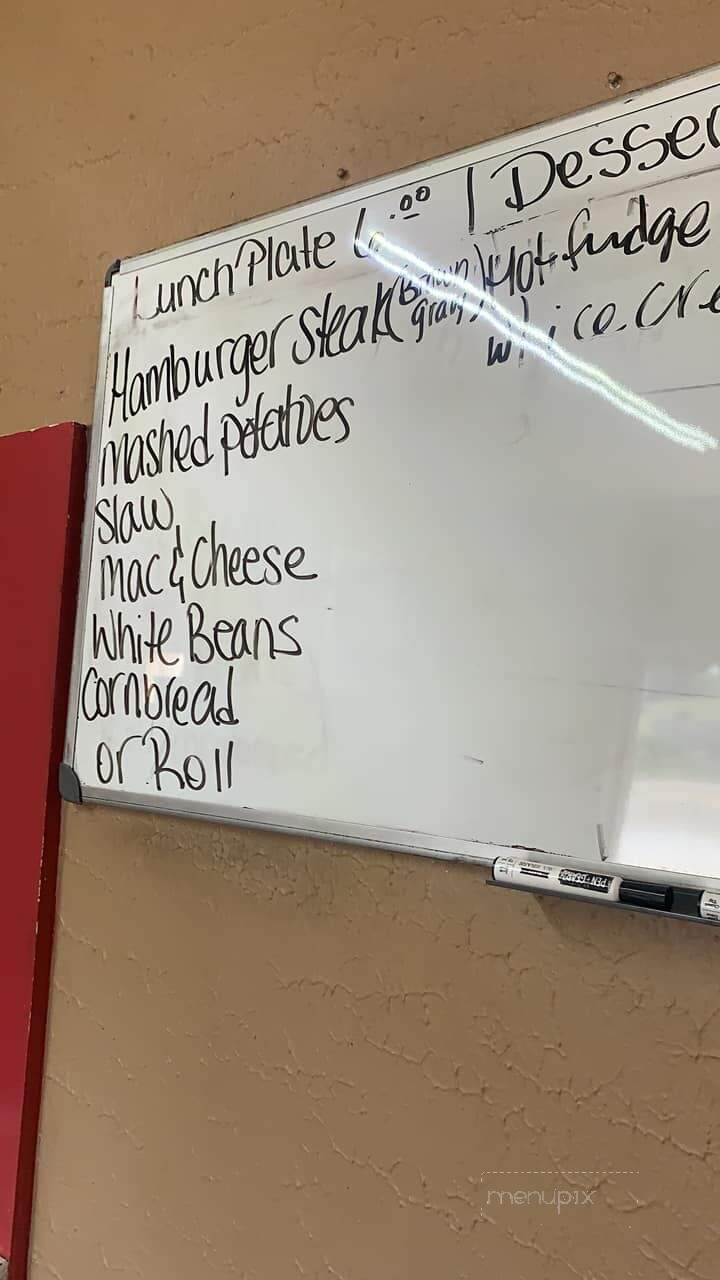 Lunch Plate 6.00 | Desser
Hamburger Steak (Brown gravy) Hot fudge
w/ ice cre
Mashed potatoes
Slaw
Mac & Cheese
White Beans
Cornbread
or Roll
PEN+GEAR
menupix